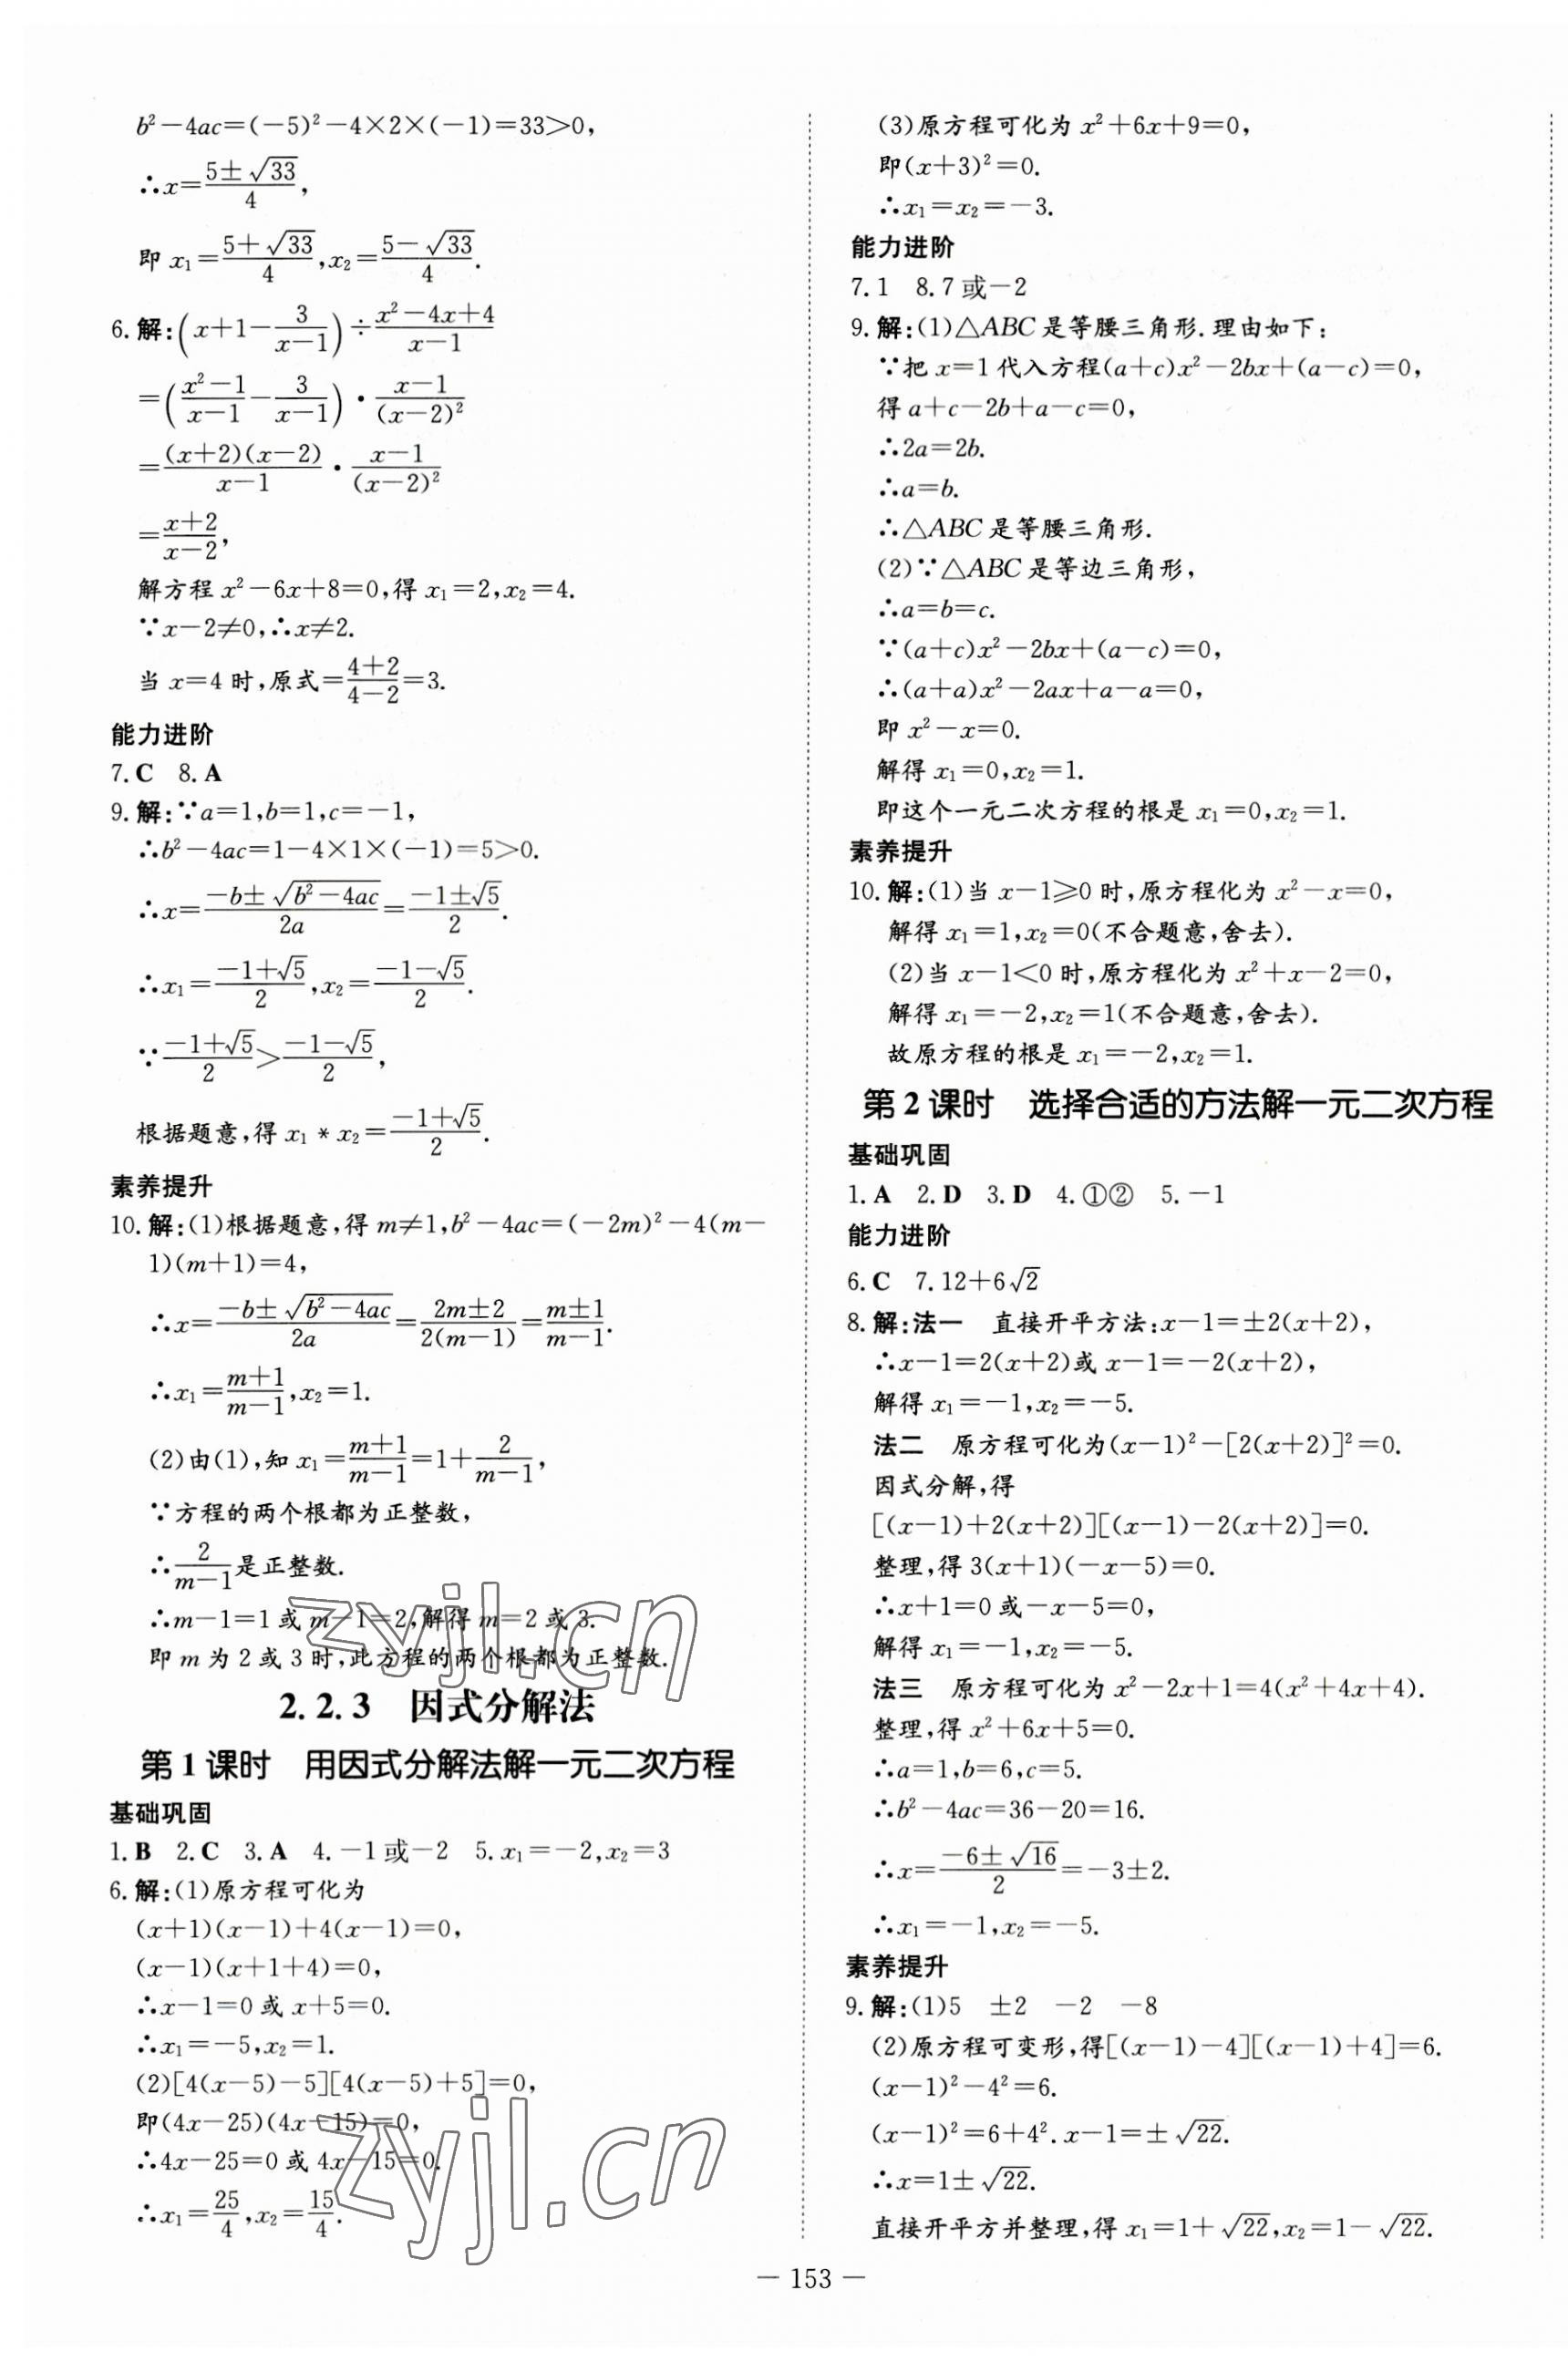 b²-4ac=(-5)²-4×2×(-1)=33>0,
∴x=\frac{5±√33}{4},
即 x₁=\frac{5+√33}{4},x₂=\frac{5-√33}{4}.
6.解:(x+1-\frac{3}{x-1})÷\frac{x²-4x+4}{x-1}
=(\frac{x²-1}{x-1}-\frac{3}{x-1})·\frac{x-1}{(x-2)²}
=\frac{(x+2)(x-2)}{x-1}·\frac{x-1}{(x-2)²}
=\frac{x+2}{x-2},
解方程 x²-6x+8=0,得 x₁=2,x₂=4.
∵x-2≠0,∴x≠2.
当 x=4 时,原式=\frac{4+2}{4-2}=3.
能力进阶
7.C 8.A
9.解:∵a=1,b=1,c=-1,
∴b²-4ac=1-4×1×(-1)=5>0.
∴x=\frac{-b±√(b²-4ac)}{2a}=\frac{-1±√5}{2}.
∴x₁=\frac{-1+√5}{2},x₂=\frac{-1-√5}{2}.
∵\frac{-1+√5}{2}>\frac{-1-√5}{2},
根据题意,得 x₁*x₂=\frac{-1+√5}{2}.
素养提升
10.解:(1)根据题意,得 m≠1,b²-4ac=(-2m)²-4(m-
1)(m+1)=4,
∴x=\frac{-b±√(b²-4ac)}{2a}=\frac{2m±2}{2(m-1)}=\frac{m±1}{m-1}.
∴x₁=\frac{m+1}{m-1},x₂=1.
(2)由(1),知 x₁=\frac{m+1}{m-1}=1+\frac{2}{m-1},
∵方程的两个根都为正整数,
∴\frac{2}{m-1}是正整数.
∴m-1=1 或 m-1=2,解得 m=2 或 3.
即 m 为 2 或 3 时,此方程的两个根都为正整数.
2.2.3 因式分解法
第 1 课时 用因式分解法解一元二次方程
基础巩固
1.B 2.C 3.A 4.-1或-2 5.x₁=-2,x₂=3
6.解:(1)原方程可化为
(x+1)(x-1)+4(x-1)=0,
(x-1)(x+1+4)=0,
∴x-1=0 或 x+5=0.
∴x₁=-5,x₂=1.
(2)[4(x-5)-5][4(x-5)+5]=0,
即(4x-25)(4x-15)=0,
∴4x-25=0 或 4x-15=0.
∴x₁=\frac{25}{4},x₂=\frac{15}{4}.
(3)原方程可化为 x²+6x+9=0,
即(x+3)²=0.
∴x₁=x₂=-3.
能力进阶
7.1 8.7 或-2
9.解:(1)△ABC 是等腰三角形.理由如下:
∵把 x=1 代入方程(a+c)x²-2bx+(a-c)=0,
得 a+c-2b+a-c=0,
∴2a=2b.
∴a=b.
∴△ABC 是等腰三角形.
(2)∵△ABC 是等边三角形,
∴a=b=c.
∵(a+c)x²-2bx+(a-c)=0,
∴(a+a)x²-2ax+a-a=0,
即 x²-x=0.
解得 x₁=0,x₂=1.
即这个一元二次方程的根是 x₁=0,x₂=1.
素养提升
10.解:(1)当 x-1≥0 时,原方程化为 x²-x=0,
解得 x₁=1,x₂=0(不合题意,舍去).
(2)当 x-1<0 时,原方程化为 x²+x-2=0,
解得 x₁=-2,x₂=1(不合题意,舍去).
故原方程的根是 x₁=-2,x₂=1.
第 2 课时 选择合适的方法解一元二次方程
基础巩固
1.A 2.D 3.D 4.①② 5.-1
能力进阶
6.C 7.12+6√2
8.解:法一 直接开平方法:x-1=±2(x+2),
∴x-1=2(x+2)或 x-1=-2(x+2),
解得 x₁=-1,x₂=-5.
法二 原方程可化为(x-1)²-[2(x+2)]²=0.
因式分解,得
[(x-1)+2(x+2)][(x-1)-2(x+2)]=0.
整理,得 3(x+1)(-x-5)=0.
∴x+1=0 或-x-5=0,
解得 x₁=-1,x₂=-5.
法三 原方程可化为 x²-2x+1=4(x²+4x+4).
整理,得 x²+6x+5=0.
∴a=1,b=6,c=5.
∴b²-4ac=36-20=16.
∴x=\frac{-6±√16}{2}=-3±2.
∴x₁=-1,x₂=-5.
素养提升
9.解:(1)5 ±2 -2 -8
(2)原方程可变形,得[(x-1)-4][(x-1)+4]=6.
(x-1)²-4²=6.
(x-1)²=6+4².x-1=±√22.
∴x=1±√22.
直接开平方并整理,得 x₁=1+√22,x₂=1-√22.
— 153 —
zyjl.cn
zyjl.cn